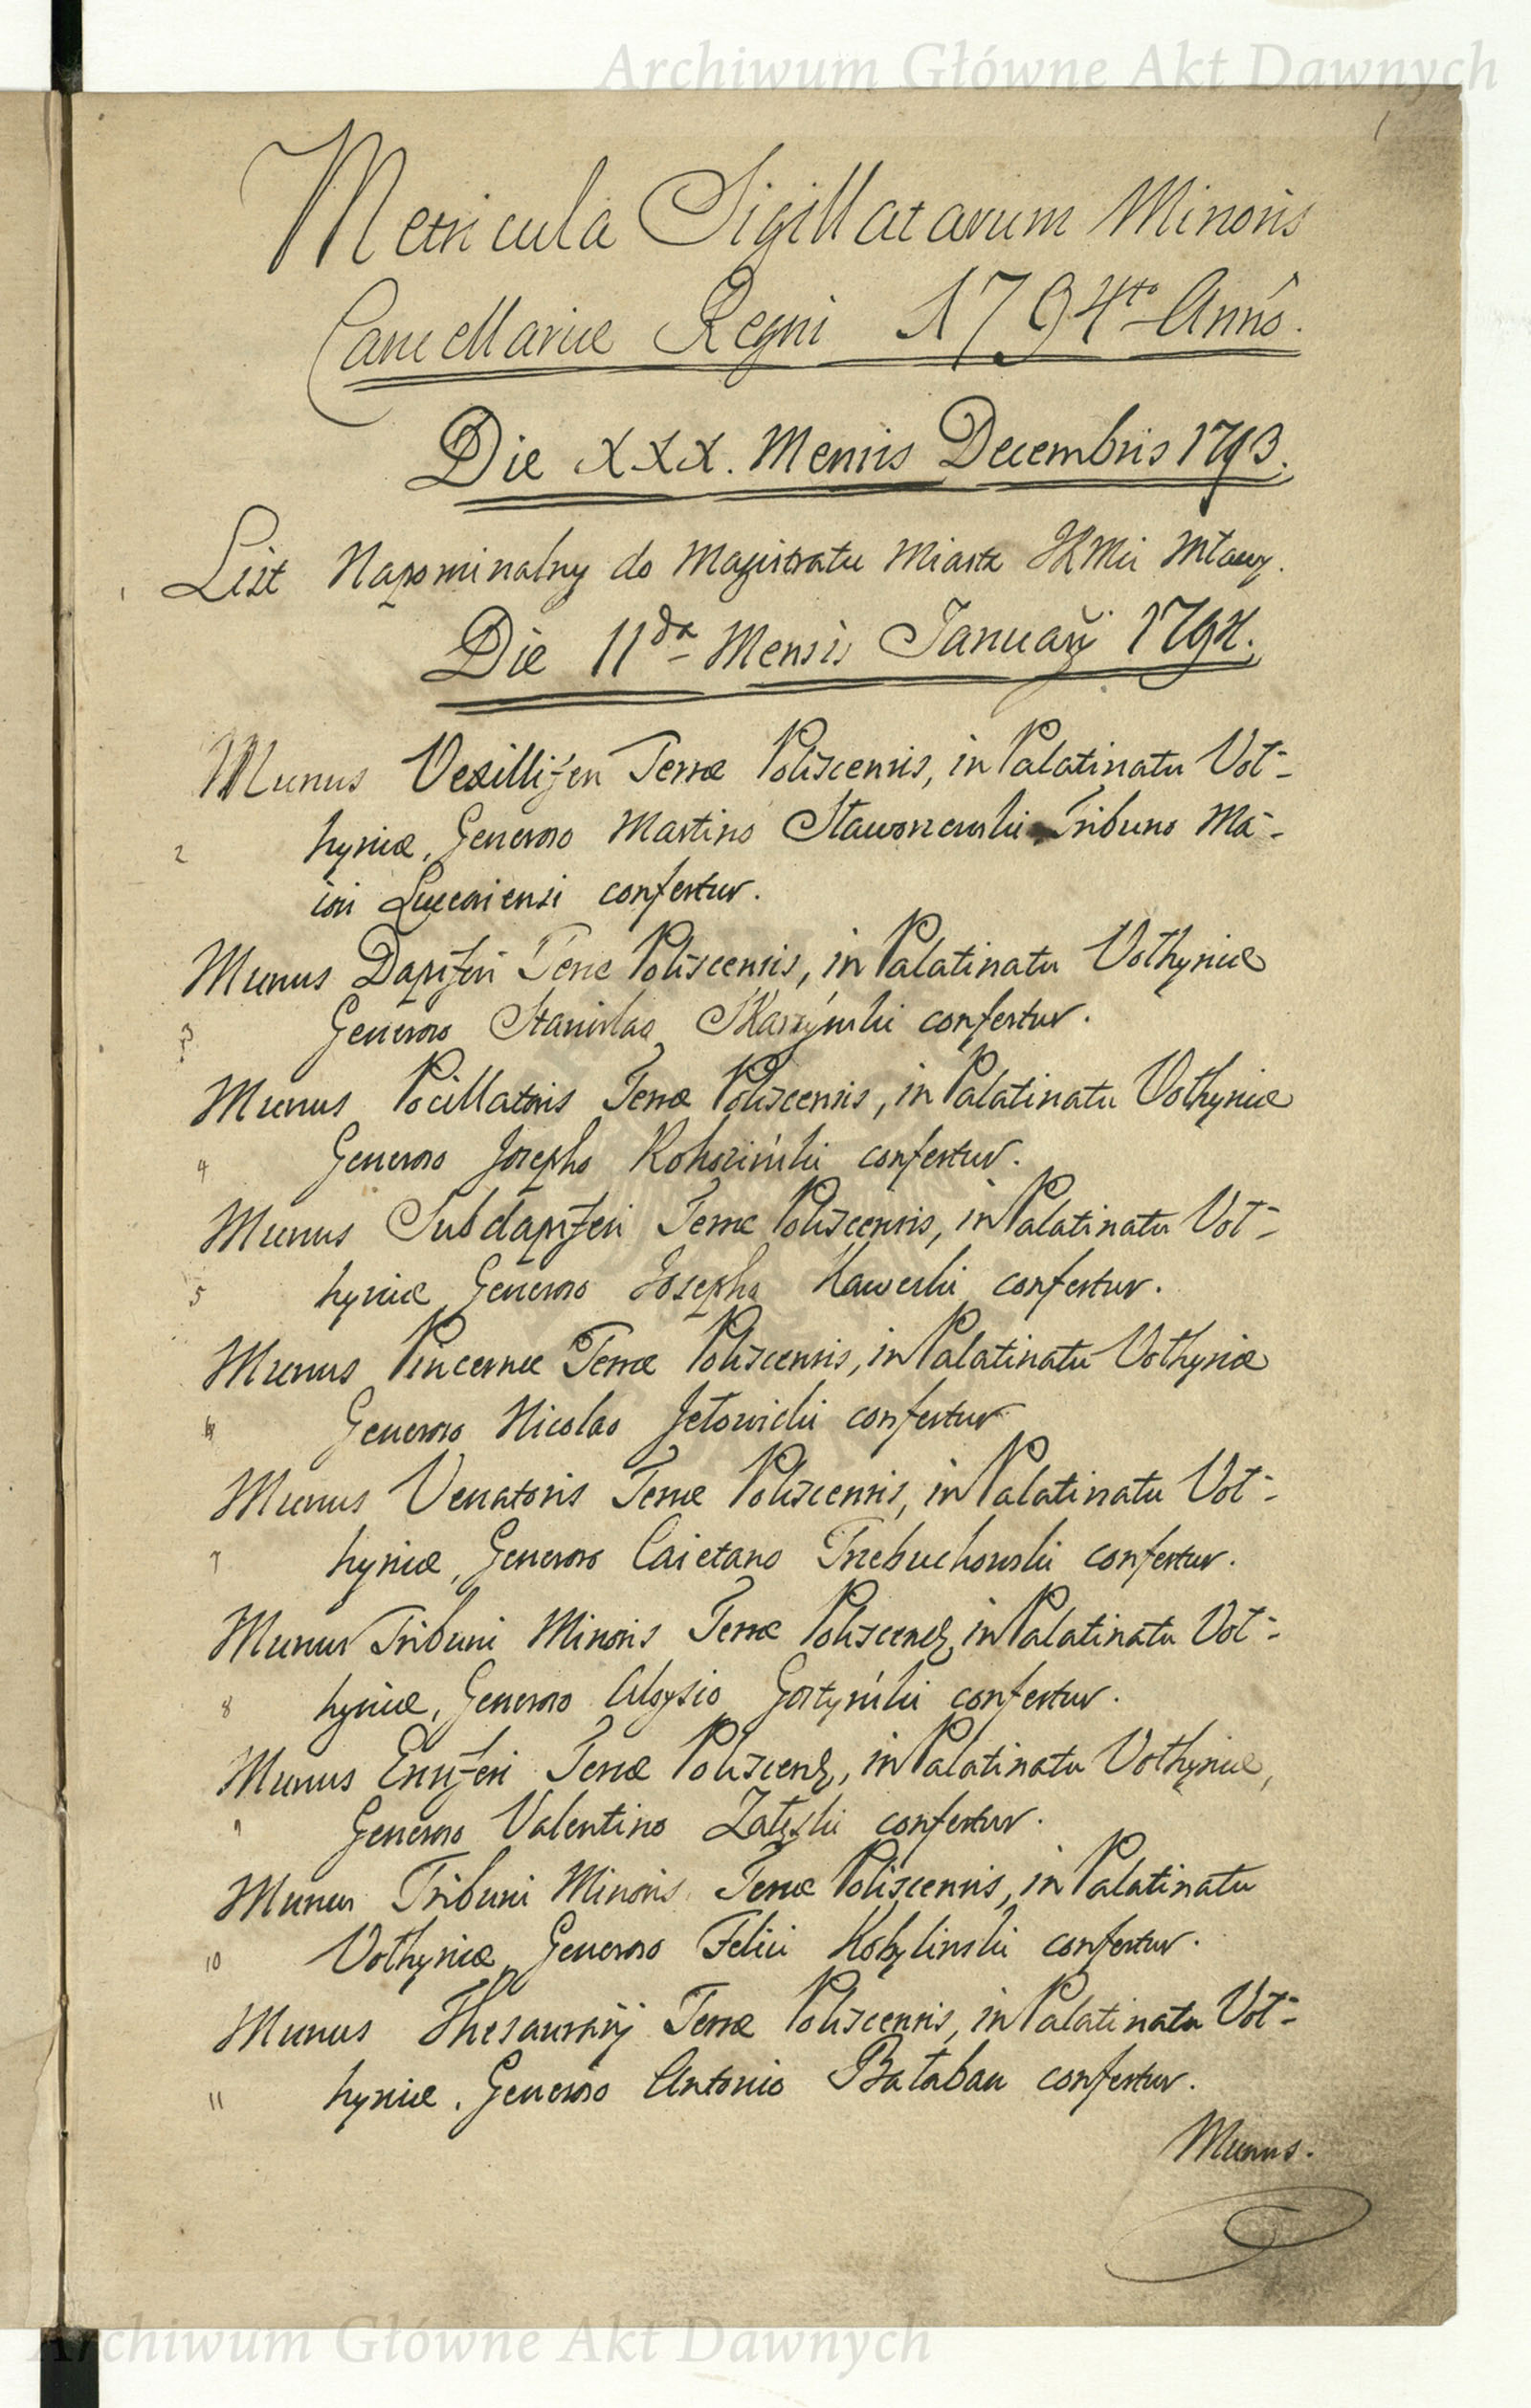 Archiwum Główne Akt Dawnych
Metricula Sigillatarum Minoris
Cancellariæ Regni 1794to Anno.
Die XXX. Mensis Decembris 1793.
1 List Napominalny do Magistratu Miasta JKMci Mławy.
Die 11da Mensis Januarij 1794.
Munus Vexilliferi Terræ Poliscensis, in Palatinatu Vol-
2 hyniæ, Generoso Martino Staworzewski Tribuno Ma-
iori Luceoriensi confertur.
Munus Dapiferi Terræ Poliscensis, in Palatinatu Volhyniæ
3 Generoso Stanislao Skarzyński confertur.
Munus Pocillatoris Terræ Poliscensis, in Palatinatu Volhyniæ
4 Generoso Josepho Rohoziński confertur.
Munus Subdapiferi Terræ Poliscensis, in Palatinatu Vol-
5 hyniæ Generoso Josepho Kawecki confertur.
Munus Pincernæ Terræ Poliscensis, in Palatinatu Volhyniæ
6 Generoso Nicolao Jełowicki confertur
Munus Venatoris Terræ Poliscensis, in Palatinatu Vol-
7 hyniæ, Generoso Caietano Trzebuchowski confertur.
Munus Tribuni Minoris Terræ Poliscens, in Palatinatu Vol-
8 hyniæ, Generoso Aloysio Gostyński confertur.
Munus Ensiferi Terræ Poliscens, in Palatinatu Volhyniæ,
9 Generoso Valentino Załęski confertur.
Munus Tribuni Minoris Terræ Poliscensis, in Palatinatu
10 Volhyniæ Generoso Felici Kobylinski confertur.
Munus Thesaurarij Terræ Poliscensis, in Palatinatu Vol-
11 hyniæ, Generoso Antonio Bałaban confertur.
Munus.
Archiwum Główne Akt Dawnych